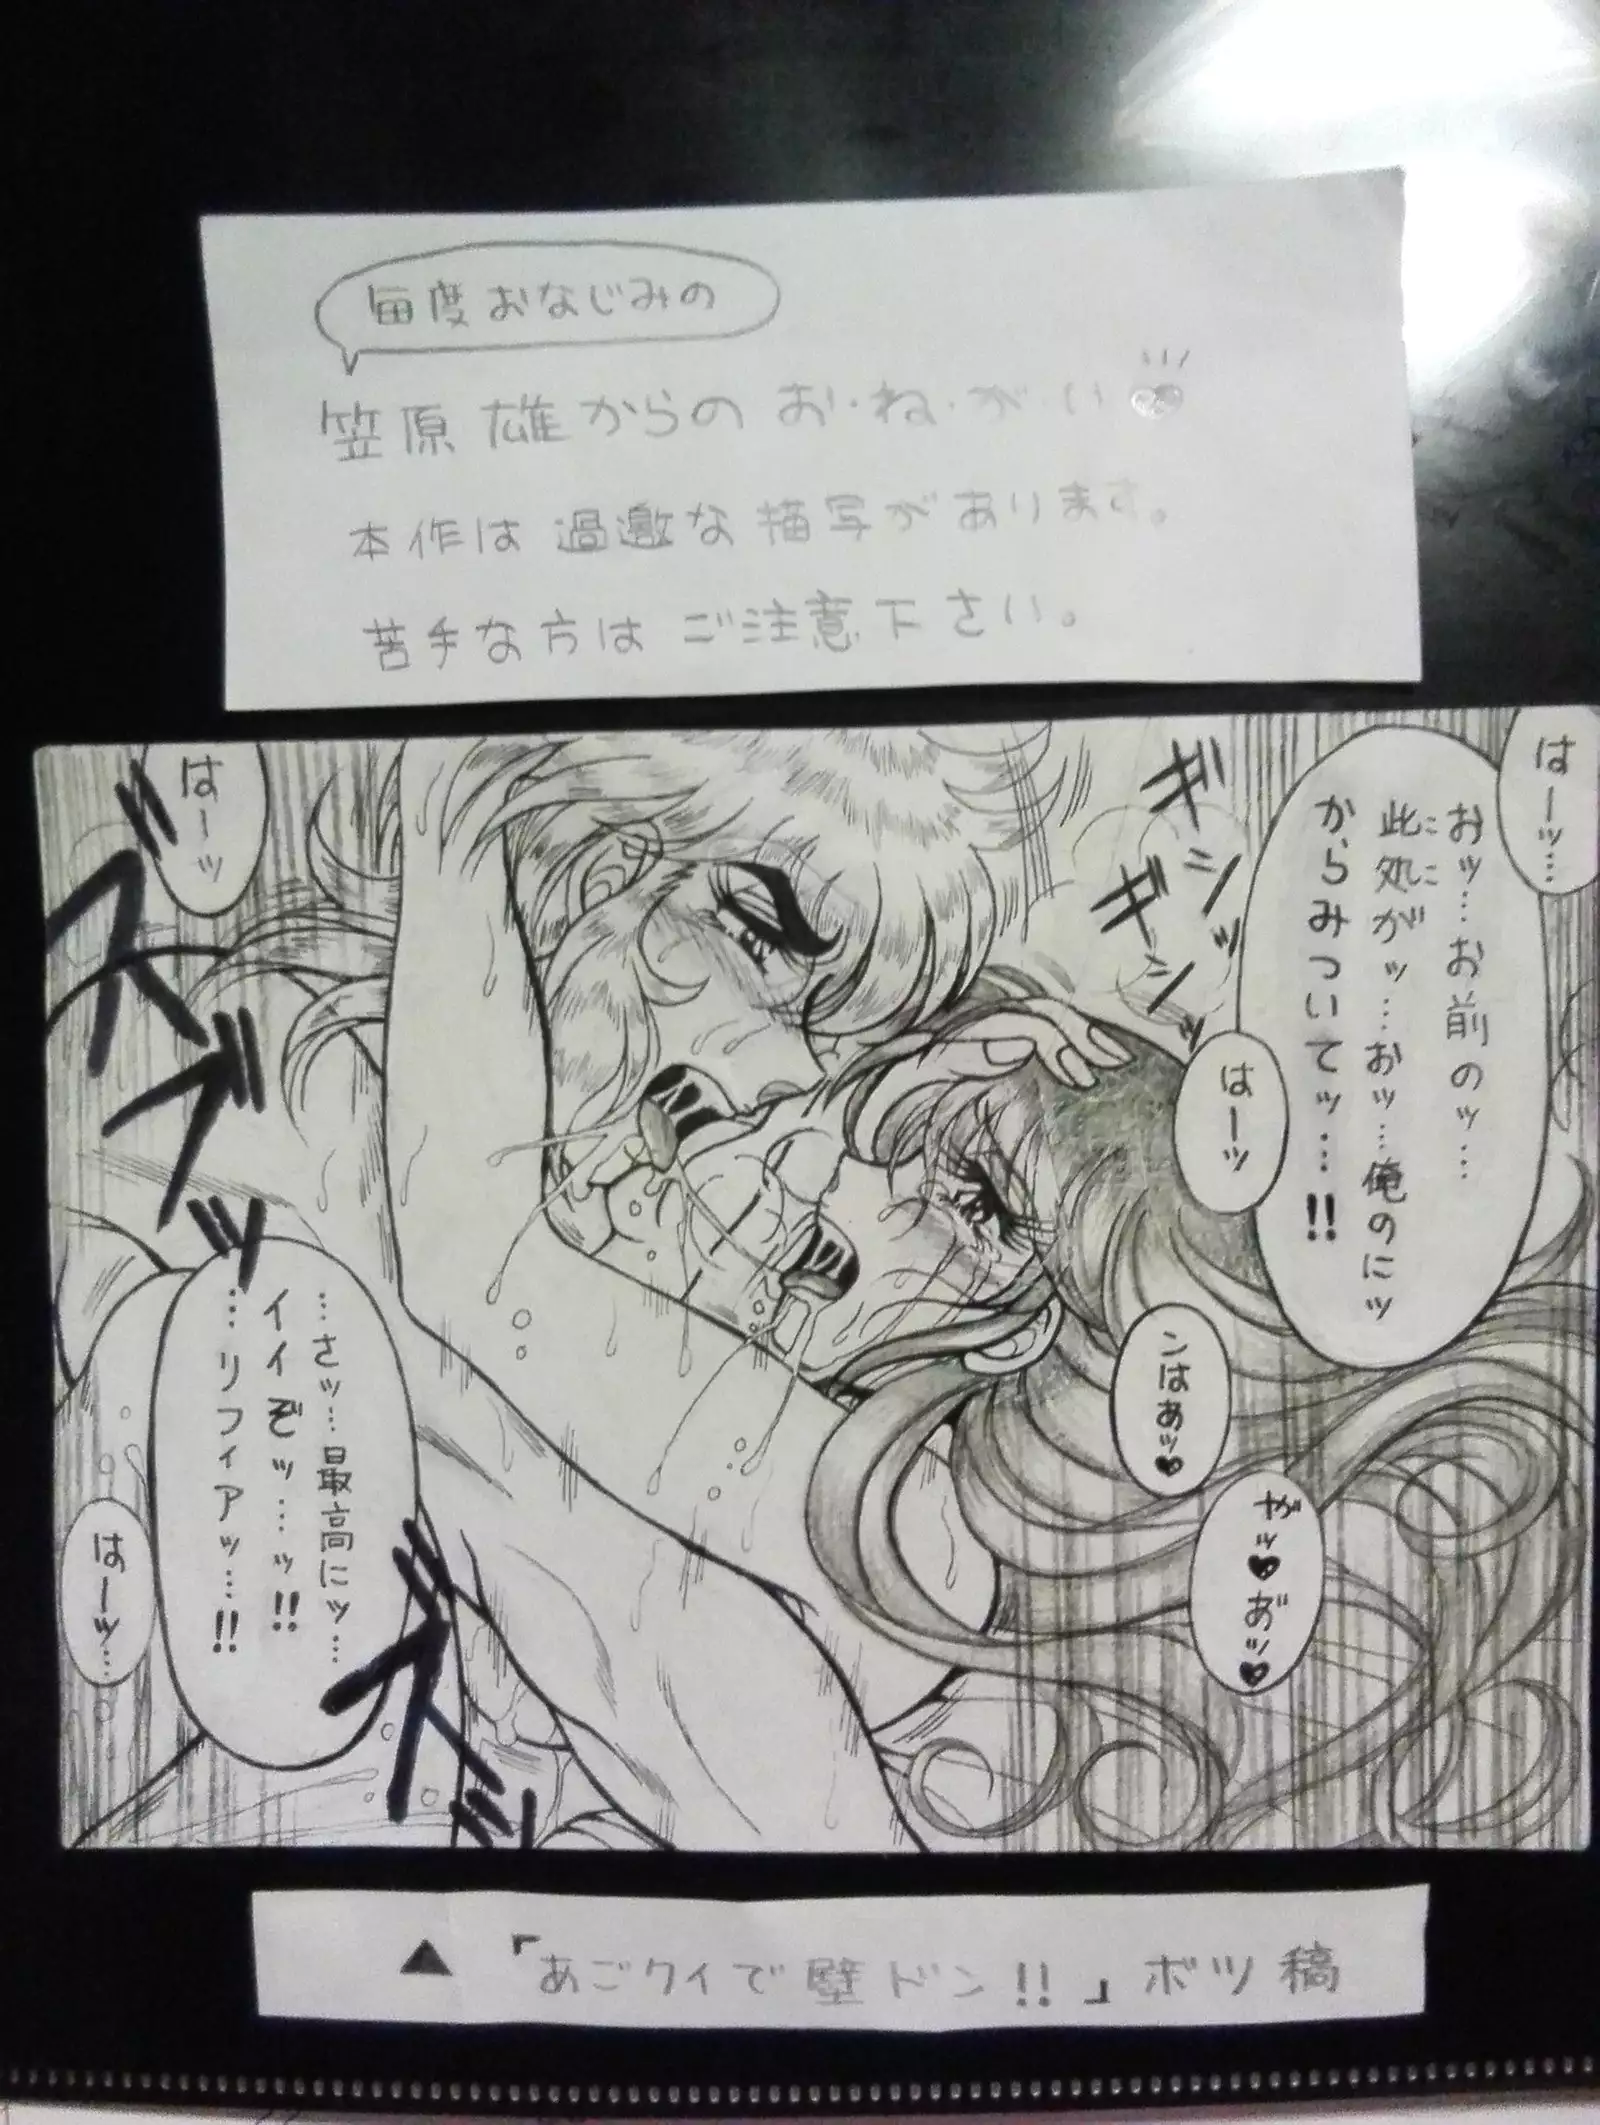 毎度おなじみの
笠原 雄からのお・ね・が・い
本作は過激な描写があります。
苦手な方はご注意下さい。
はーッ…
おッ…お前のッ…
此処がッ…おッ…俺のにッ
ここ
からみついてッ…!!
ギシッ
ギシッ
はーッ
はーッ
ズブッ
んはあッ♥
やッ♥あ゙ッ♥
…さッ…最高にッ…
イイぞッ…ッ!!
…リフィアッ…!!
はーッ…
ズ
▲「あごクイで壁ドン!!」ボツ稿